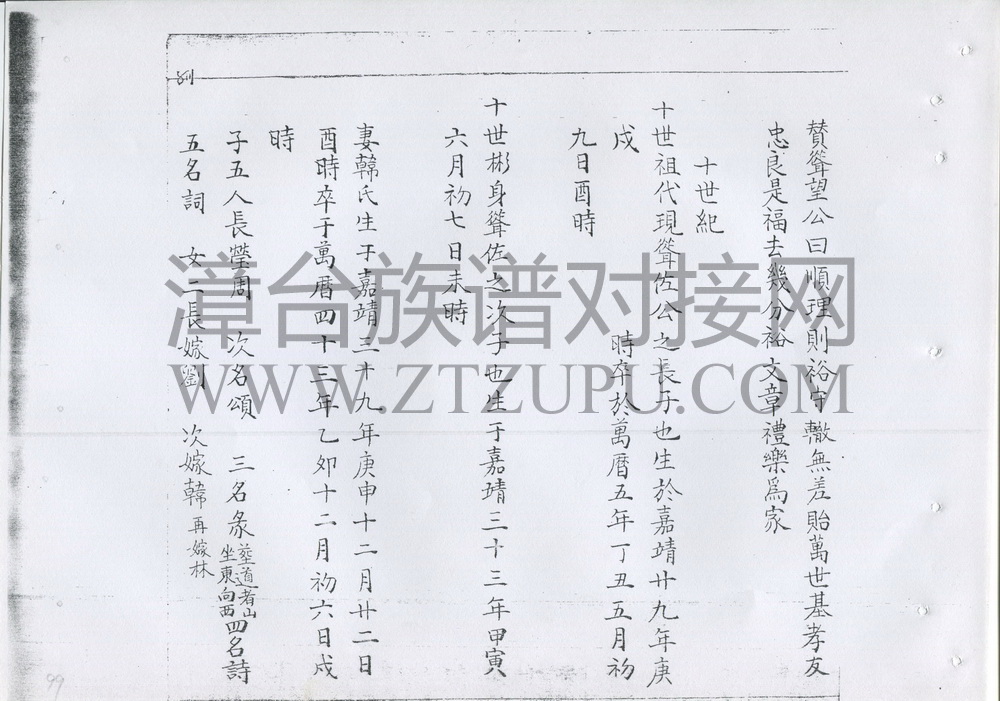 贊聳望公曰順理則裕守轍無差貽萬世基孝友
忠良是福去幾分裕文章禮樂爲家
十世紀
十世祖代現聳佐公之長子也生於嘉靖廿九年庚
戌 時卒於萬曆五年丁丑五月初
九日酉時
十世彬身聳佐之次子也生于嘉靖三十三年甲寅
六月初七日未時
妻韓氏生于嘉靖三十九年庚申十二月廿二日
酉時卒于萬曆四十三年乙卯十二月初六日戍
時
子五人長瑩周 次名頌 三名彖葬道者山坐東向西四名詩
五名詞 女二長嫁劉 次嫁韓再嫁林
99
漳台族谱对接网
WWW.ZTZUPU.COM